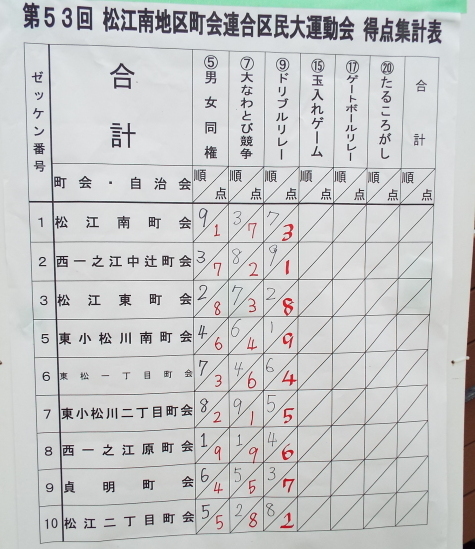 第53回 松江南地区町会連合区民大運動会 得点集計表
ゼッケン番号 合計 ⑤男女同権 ⑦大なわとび競争 ⑨ドリブルリレー ⑮玉入れゲーム ⑰ゲートボールリレー ⑳たるころがし 合計
町会・自治会 順 点 順 点 順 点 順 点 順 点 順 点 順 点
1 松江南町会 9 1 3 7 7 3
2 西一之江中辻町会 3 7 8 2 9 1
3 松江東町会 2 8 7 3 2 8
5 東小松川南町会 4 6 6 4 1 9
6 東松一丁目町会 7 3 4 6 6 4
7 東小松川二丁目町会 8 2 9 1 5 5
8 西一之江原町会 1 9 1 9 4 6
9 貞明町会 6 4 5 5 3 7
10 松江二丁目町会 5 5 2 8 8 2